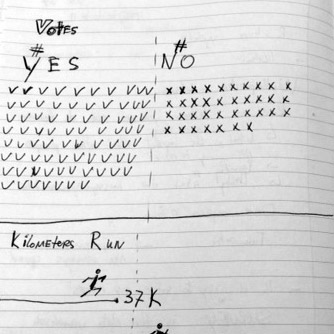 Votes
# #
YES NO
Kilometers Run
37K